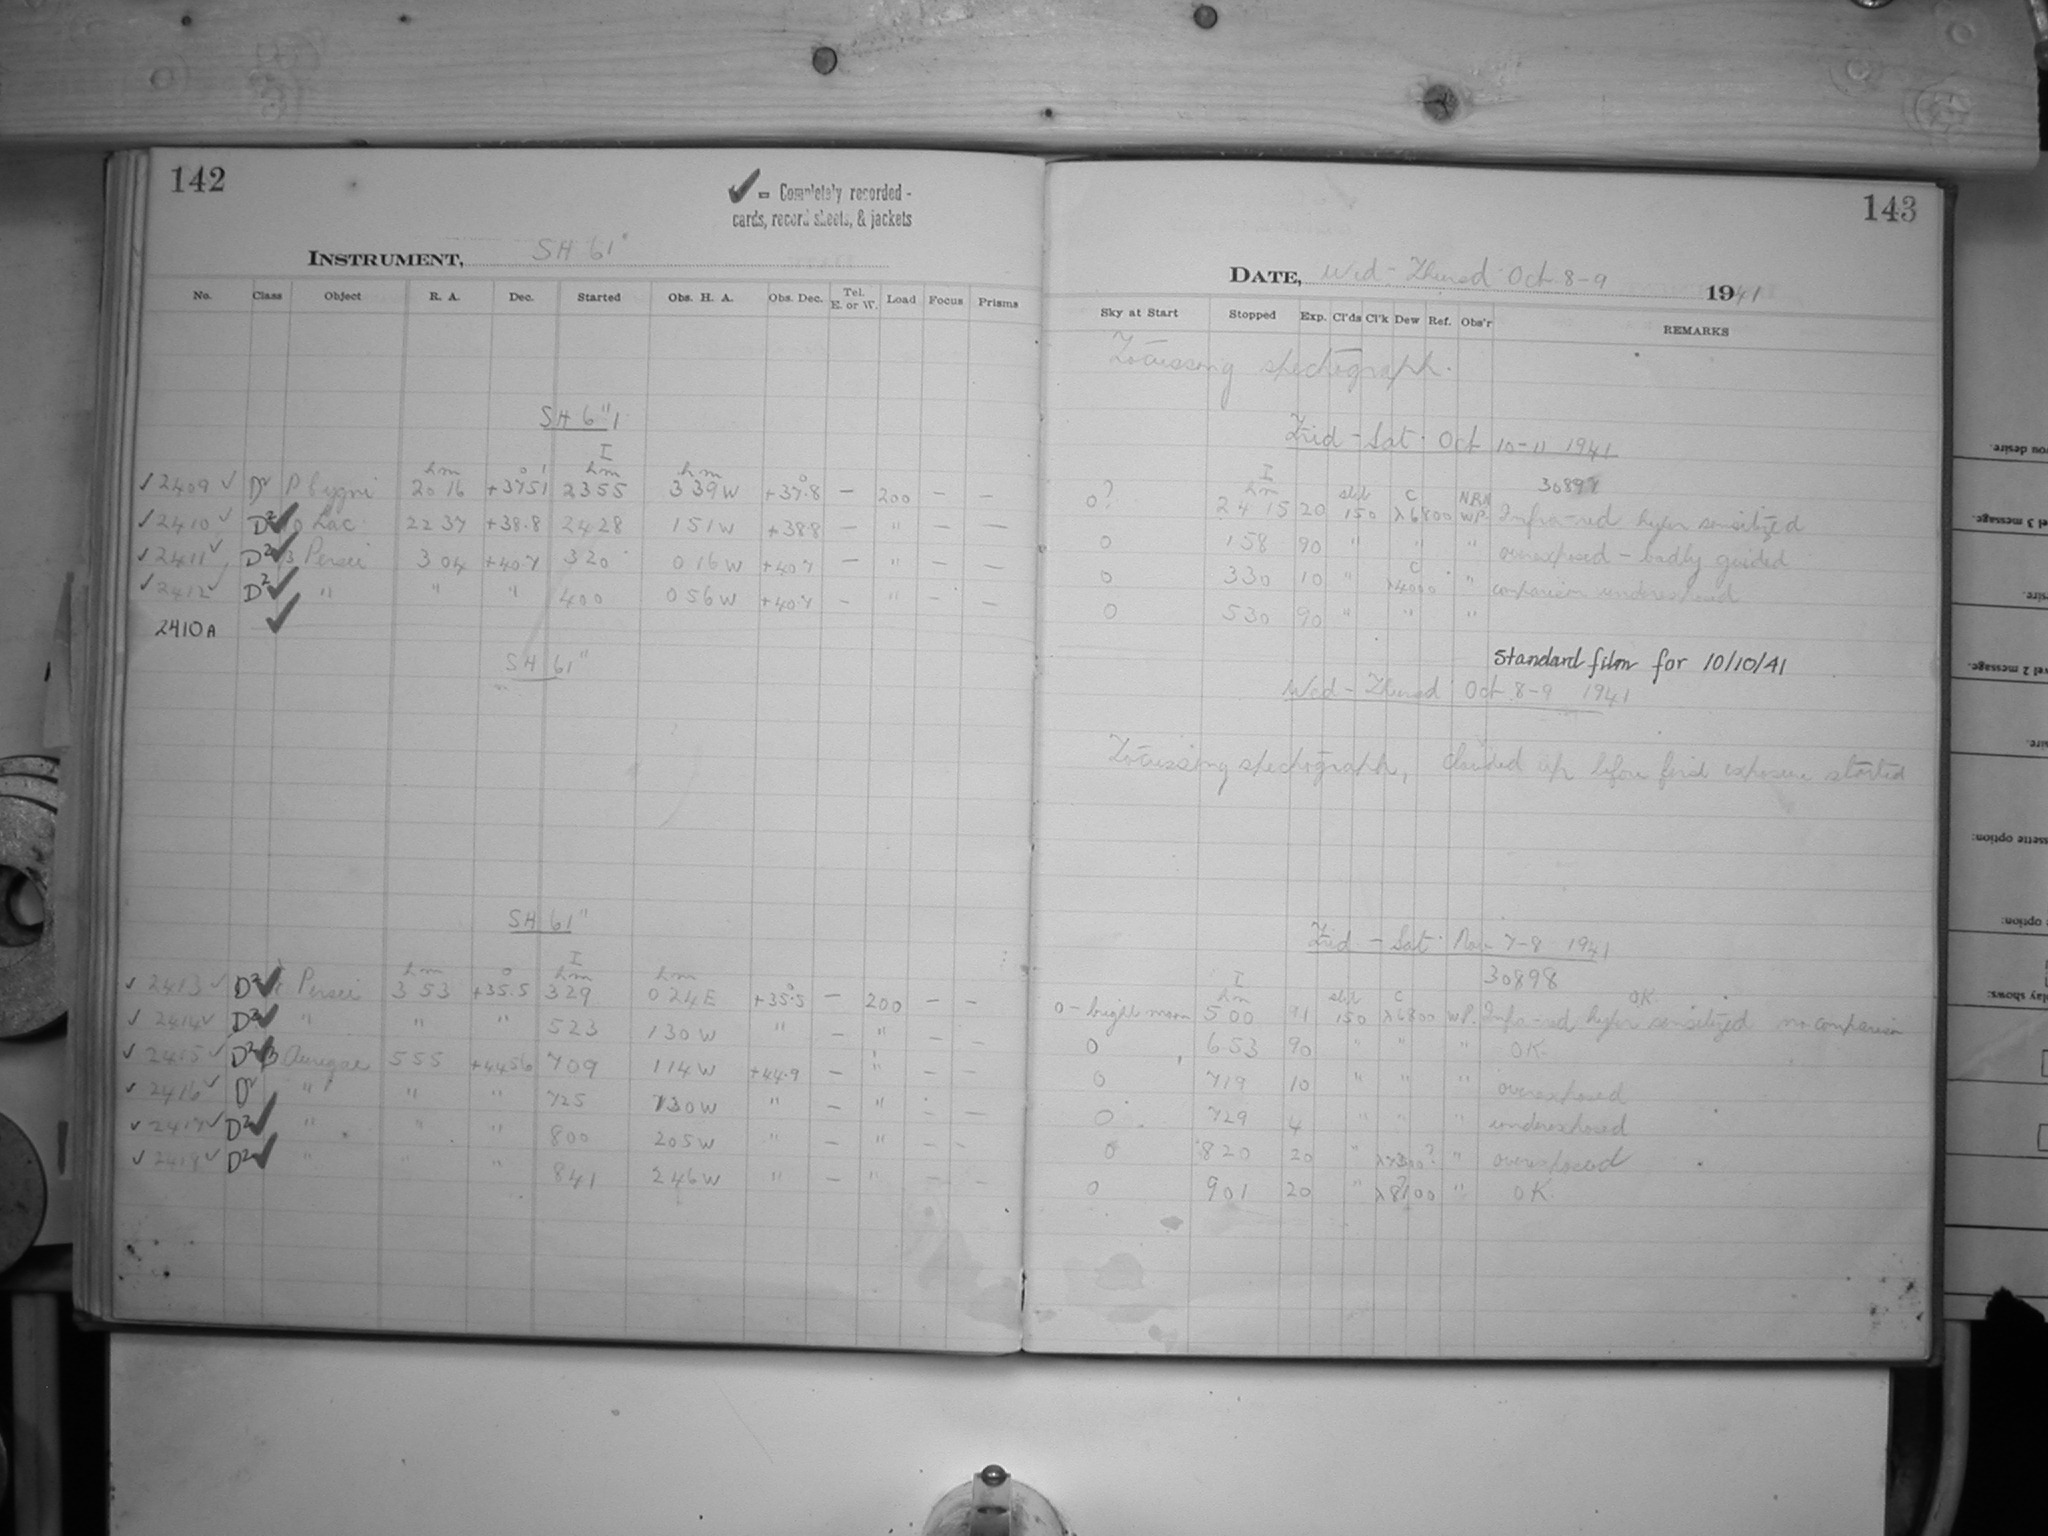 142
✓ = Completely recorded -
cards, record sheets, & jackets
INSTRUMENT, SH 61"
No. Class Object R. A. Dec. Started Obs. H. A. Obs. Dec. Tel. E. or W. Load Focus Prisms
SH 61"
I
h m ° ' h m h m °
✓ 2409 ✓ P Cygni 20 16 +37 51 23 55 3 39 W +37.8 — 200 — —
✓ 2410 ✓ D2 ✓ 10 Lac 22 37 +38.8 24 28 1 51 W +38.8 — " — —
✓ 2411 ✓ D2 ✓ β Persei 3 04 +40.7 3 20 0 16 W +40.7 — " — —
✓ 2412 ✓ D2 ✓ " " " 4 00 0 56 W +40.7 — " — —
2410A ✓
SH 61"
SH 61"
I
h m ° h m h m °
✓ 2413 ✓ D2 ✓ Persei 3 53 +35.5 3 29 0 24 E +35.5 — 200 — —
✓ 2414 ✓ D2 ✓ " " " 5 23 1 30 W " — " — —
✓ 2415 ✓ D2 ✓ β Aurigae 5 55 +44 56 7 09 1 14 W +44.9 — " — —
✓ 2416 ✓ " " " 7 25 1 30 W " — " — —
✓ 2417 ✓ D2 ✓ " " " 8 00 2 05 W " — " — —
✓ 2418 ✓ D2 ✓ " " " 8 41 2 46 W " — " — —
143
DATE, Wed - Thursd Oct 8-9 1941
Sky at Start Stopped Exp. Cl'ds Cl'k Dew Ref. Obs'r REMARKS
Focussing spectrograph.
Frid - Sat. Oct 10-11 1941
I 30897
h m slit C NRN
0? 24 15 20 150 λ6800 WP. Infra-red hyper sensitized
0 1 58 90 " " " overexposed - badly guided
C
0 3 30 10 " λ4000 " comparison underexposed
0 5 30 90 " " "
Standard film for 10/10/41
Wed - Thursd Oct 8-9 1941
Focussing spectrograph, clouded up before first exposure started
Frid - Sat. Nov 7-8 1941
I 30898
h m slit C OK
0 - bright moon 5 00 91 150 λ6800 WP. Infra-red hyper sensitized no comparison
0 6 53 90 " " " OK
0 7 19 10 " " " overexposed
0 7 29 4 " " " underexposed
0 8 20 20 " " overexposed
0 9 01 20 " λ8100 " OK